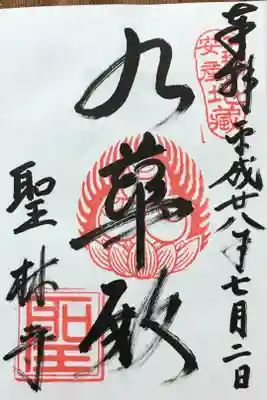 奉拝 平成廿八年七月二日
安産地蔵
九華殿
聖林寺